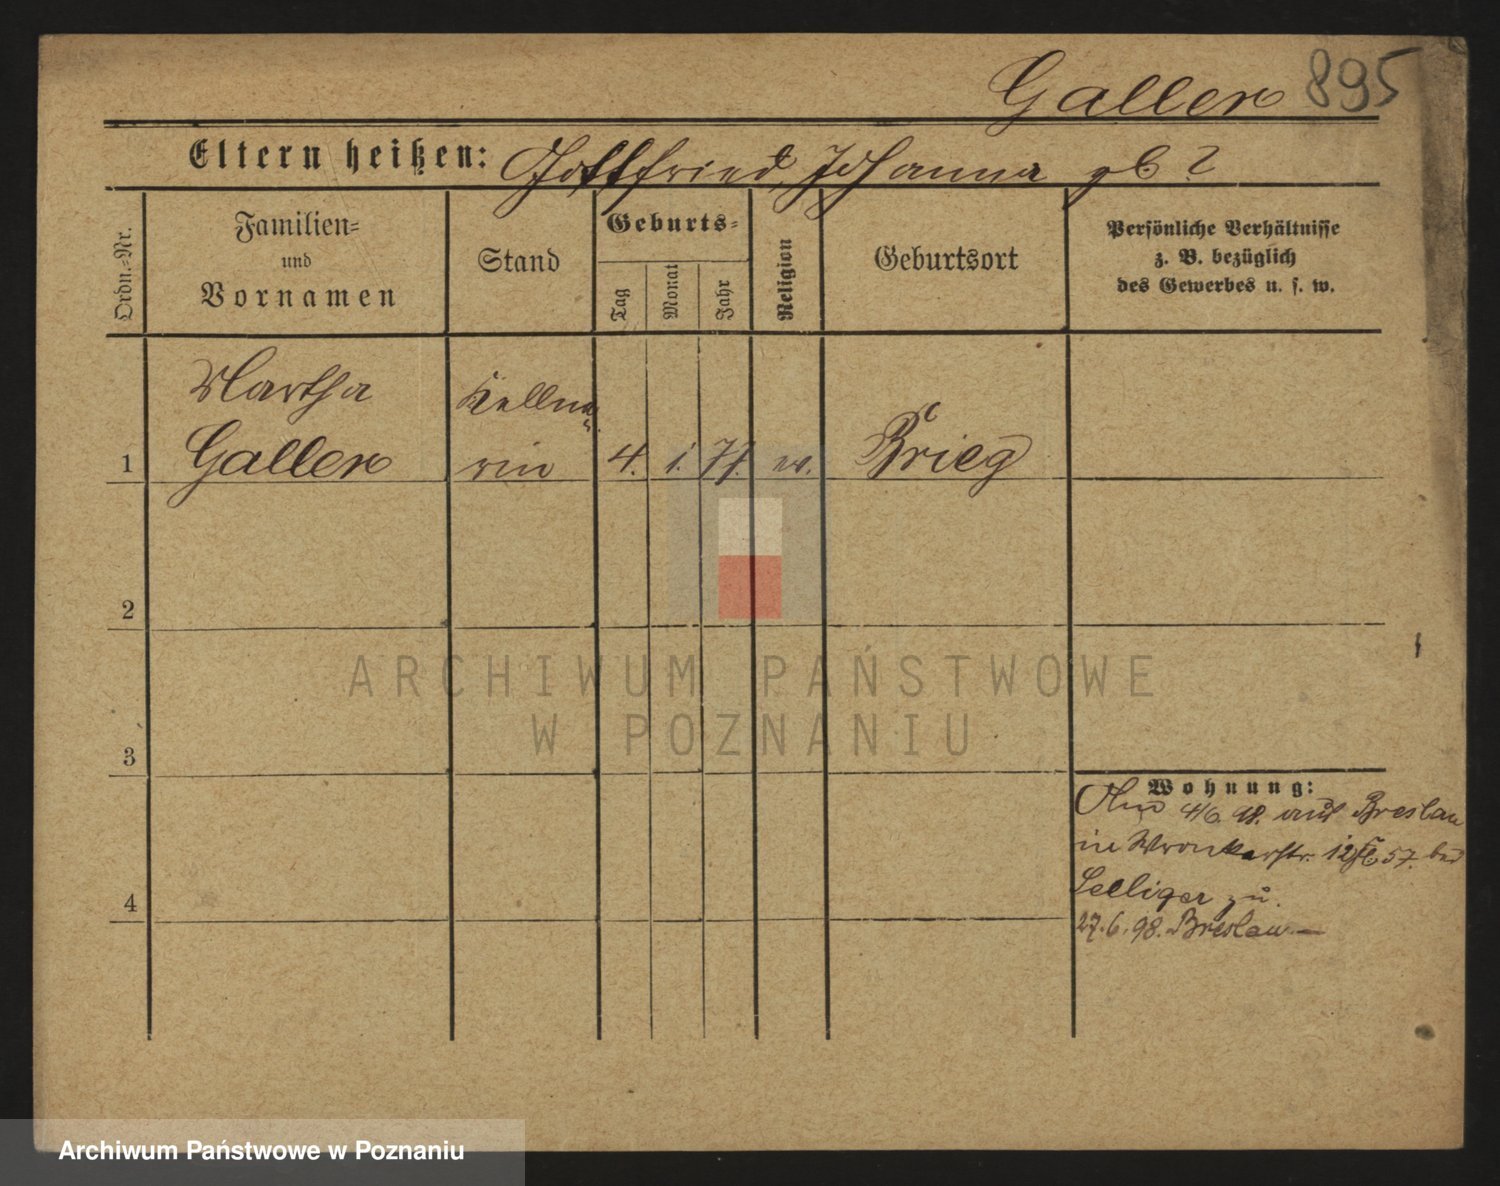 Galler 895
Eltern heißen: Gottfried, Johanna gb ?
Ordn.-Nr.
Familien-
und
Vornamen
Stand
Geburts-
Tag
Monat
Jahr
Religion
Geburtsort
Persönliche Verhältnisse
z. B. bezüglich
des Gewerbes u. s. w.
1
Martha
Galler
Kellne
rin
4. 1. 77.
Brieg
2
3
4
Wohnung:
4/6. 98. aus Breslau
in Wronkerstr. 12 57. bei
Selliger zu.
27.6.98. Breslau —
ARCHIWUM PAŃSTWOWE
W POZNANIU
Archiwum Państwowe w Poznaniu